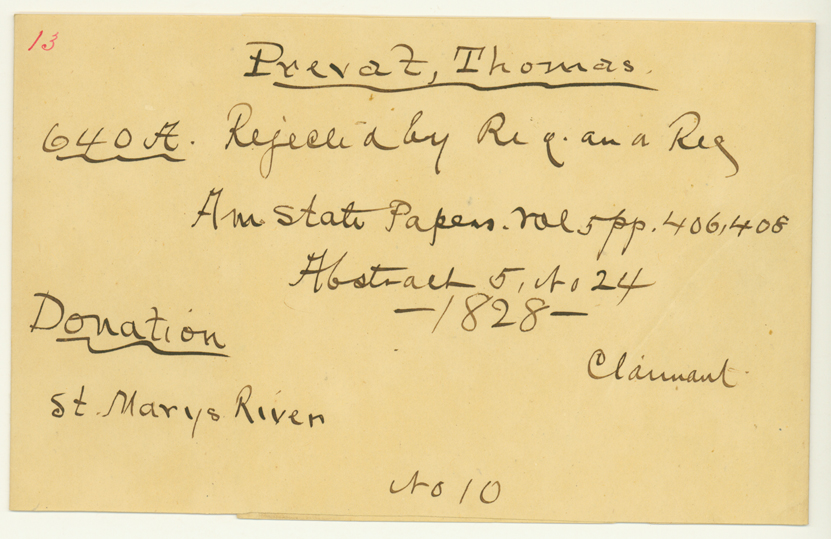 13
Prevat, Thomas.
640 A. Rejected by Reg. and Reg
Am State Papers. vol 5 pp. 406, 408
Abstract 5, No 24
—1828—
Donation
Claimant
St. Marys River
No 10